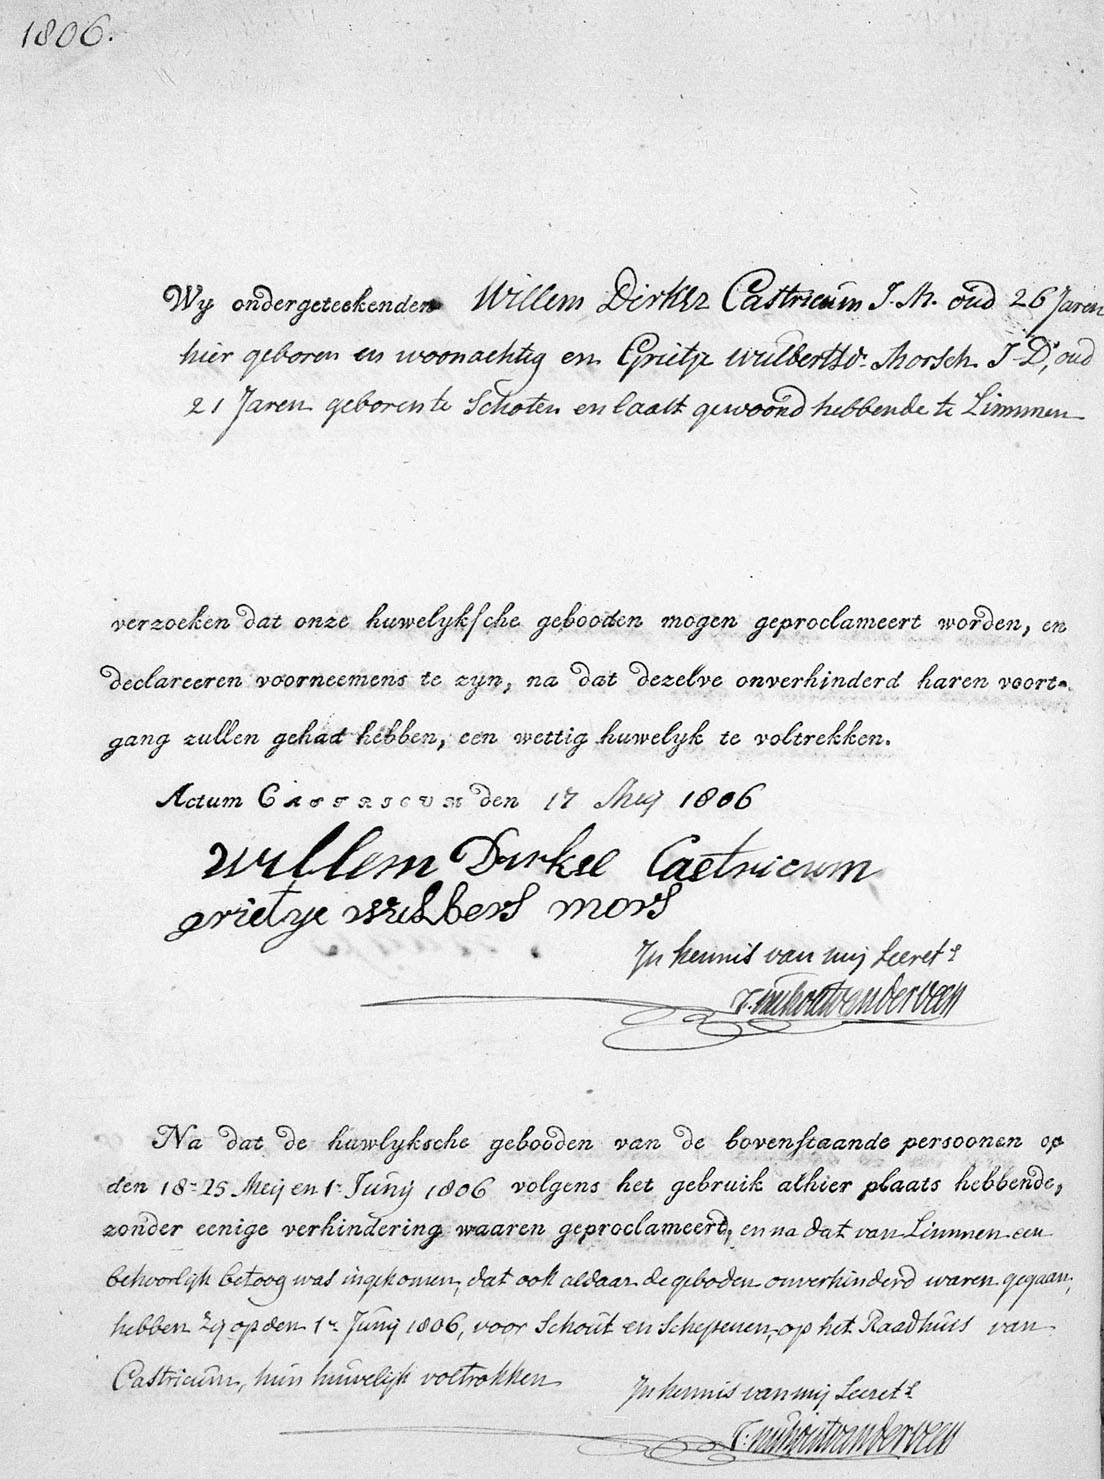 1806.
Wy ondergeteekenden Willem Dirksz Castricum J. M. oud 26 Jaren
hier geboren en woonachtig en Grietje Wulbertsdr. Morsch J. D., oud
21 Jaren geboren te Schoten en laatst gewoond hebbende te Limmen
verzoeken dat onze huwelyksche gebooden mogen geproclameert worden, en
declareeren voorneemens te zyn, na dat dezelve onverhinderd haren voort-
gang zullen gehad hebben, een wettig huwelyk te voltrekken.
Actum CASTRICUM den 17 Meij 1806
Willem Dirkse Castricum
grietye wulbers mors
In kennis van mij Secrets
Na dat de huwlyksche gebooden van de bovenstaande persoonen op
den 18- 25 Meij en 1- Junij 1806 volgens het gebruik alhier plaats hebbende,
zonder eenige verhindering waaren geproclameerd, en na dat van Limmen een
behoorlijk betoog was ingekomen, dat ook aldaar de geboden onverhinderd waren gegaan,
hebben zij op den 1- Junij 1806, voor Schout en Schepenen, op het Raadhuis van
Castricum, hun huwelijk voltrokken
In kennis van mij Secrets